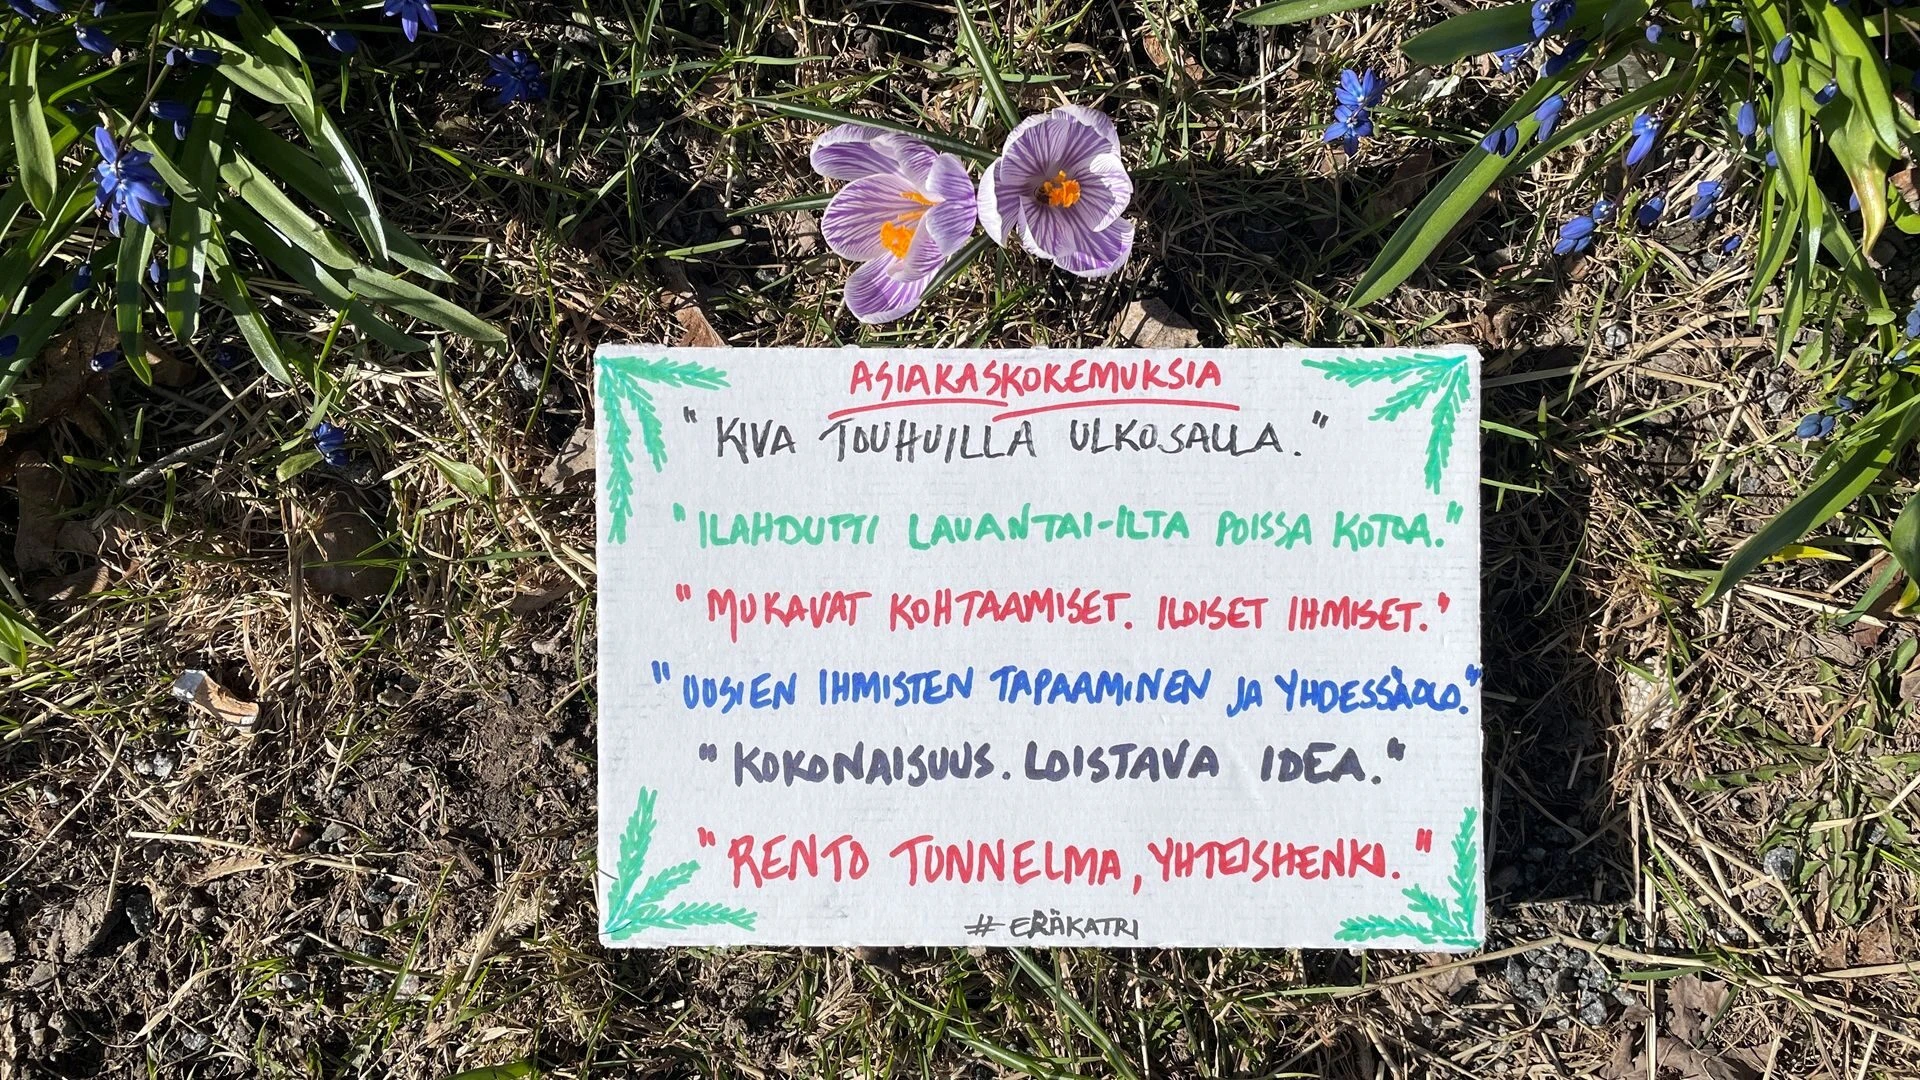 ASIAKASKOKEMUKSIA
"KIVA TOUHUILLA ULKOSALLA."
"ILAHDUTTI LAUANTAI-ILTA POISSA KOTOA."
"MUKAVAT KOHTAAMISET. ILOISET IHMISET."
"UUSIEN IHMISTEN TAPAAMINEN JA YHDESSÄOLO."
"KOKONAISUUS. LOISTAVA IDEA."
"RENTO TUNNELMA, YHTEISHENKI."
# ERÄKATRI